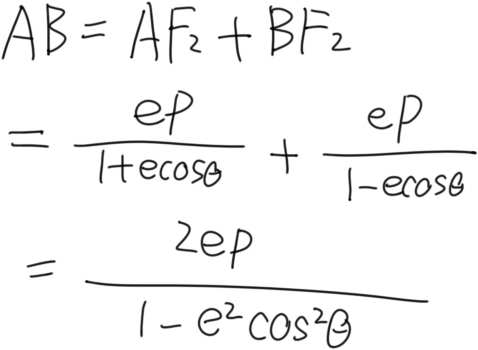 AB = AF₂ + BF₂
= \frac{ep}{1+ecosθ} + \frac{ep}{1-ecosθ}
= \frac{2ep}{1-e²cos²θ}